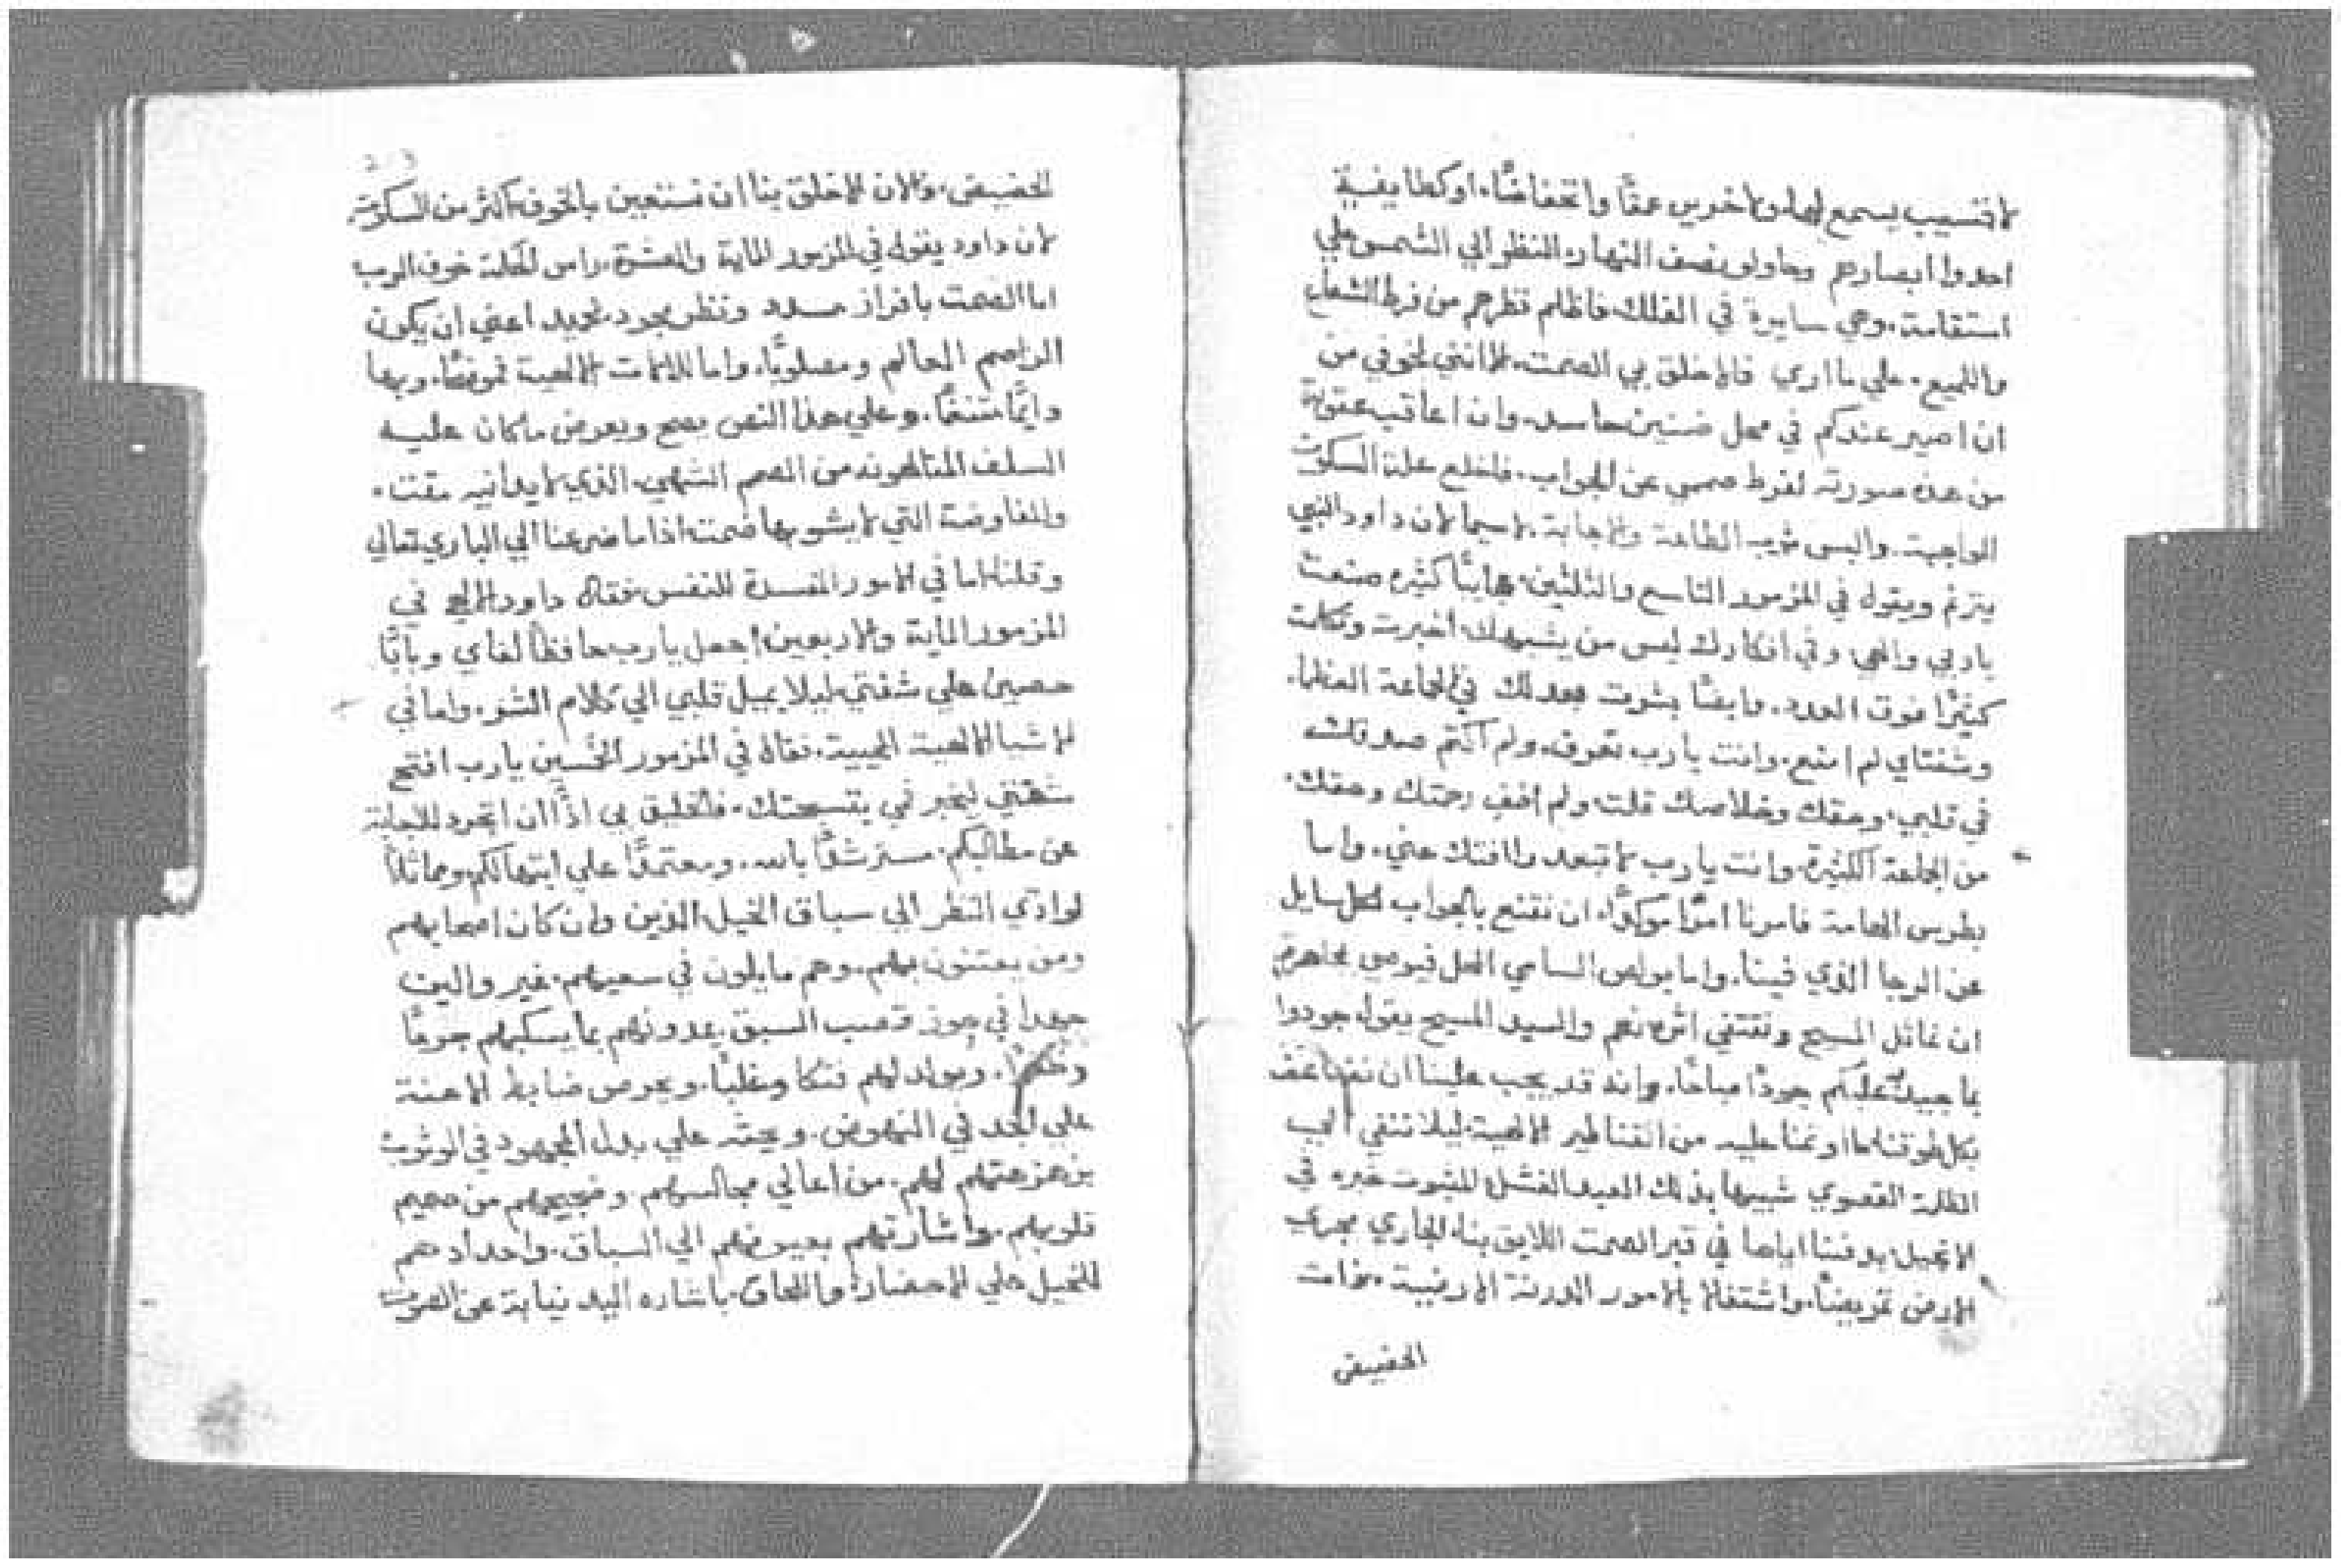 لا فتسيب يسمع لها ولاخرس عمقًا وانخفاضًا. او كطايفية
احدوا ابصارهم وحاولو نصف النهار النظر الي الشمس علي
استقامة. وهي سايرة في الفلك فاظلم نظرهم من فرط الشعاع
واللميع. علي ما اري فالاخلق بي الصمت. الا انني لخوفي من
ان اصير عندكم في محل ضنين حاسد. وان اعاقب عقوبة
من هذه صورته لفرط صمتي عن الجواب. فاخلع علة السكوت
الواجبة. والبس ثوب الطاعة والاجابة. لاسيما لان داود النبي
يترنم ويقول في المزمور التاسع والثلثين. عجايبًا كثيره صنعت
يا ربي والهي. وفي افكارك ليس من يشبهك. اخبرت وتكلمت
كثيرًا فوق العدد. وايضًا بشرت بعدلك في الجماعة العظما.
وشفتاي لم امنع. وانت يا رب تعرف. ولم اكتم صدقك
في قلبي. وحقك وخلاصك قلت. ولم اخفِ رحمتك وحقك.
من الجماعة الكثيرة. وانت يا رب لا تبعد رافتك عني. واما
بطرس الهامة فامرنا امرًا موكدًا. ان نقنع بالجواب لكل سايل
عن الرجا الذي فينا. واما بولص السامي المحل فيوصي
ان نماثل المسيح ونقتفي اثره نعم والسيد المسيح يقول جودوا
بما جيد عليكم جودًا مباحًا. وانه قد يجب علينا ان نضاعف
بكل طوقنا ما اوتمنا عليه من القناطير الالهية. ليلا ننفي الي
الظلمة القصوي شبيها بذلك العبد الفشل المثبوت خبره في
الانجيل. بدفننا اياها في قبر الصمت اللايق بنا. الجاري مجري
الارض تمريضًا. واشتغالا بالامور الدرنة الارضية
الحقيقي
الحقيقي. فالان الاخلق بنا ان نستعين بالخوف اكثر من السكوت
لان داود يقول في المزمور الماية والعشرة. راس الحكمة خوف الرب
اما الصمت بافراز ونظر اعني ان يكون
العالم ومصلوبًا. واما الالهية
دايمًا متنعمًا. وعلي هذا النص يصح ويعرض ما كان عليه
السلف المتالهون من الصمم الشهي. الذي لا يدانيه مقت.
والمفاوضة التي لا يشوبها صمت. اذا ما ضرعنا الي الباري تعالي
وقلنا. اما في الامور المفسدة للنفس فقال داود في
المزمور الماية والاربعين. اجعل يا رب حافظًا لفاي وبابًا
حصين علي شفتي. ليلا يميل قلبي الي كلام الشر. واما في
الاشيا الالهية المحيية. فقال في المزمور الخمسين يا رب افتح
شفتي ليخبر في بتسبحتك. فالخليق بي اذًا ان اتجرد للاجابة
عن مطالبكم. مسترشدًا بالله. ومعتمدًا علي ابتهالكم. ومماثلاً
لواذي النظر الي سباق الخيل. الذين وان كان اصحابهم
ومن يعتنون بهم. وهم مايلون في سعيهم. غير والين
جهدا في حوز قصب السبق. يمدونهم بما يسكبهم جوعًا
. ويولد لهم فتكا وغلبًا. ويحرص ضابط الاعنة
علي الجد في النهوض. ويحثه علي بدل المجهود في الوثوب
لهم. من اعالي مجالسهم. وضجيجهم من صميم
قلوبهم. واشارتهم بعيونهم الي السباق. واحدادهم
للخيل علي الاحضار. واللحاق. باشاره اليد نيابة عن الصوت